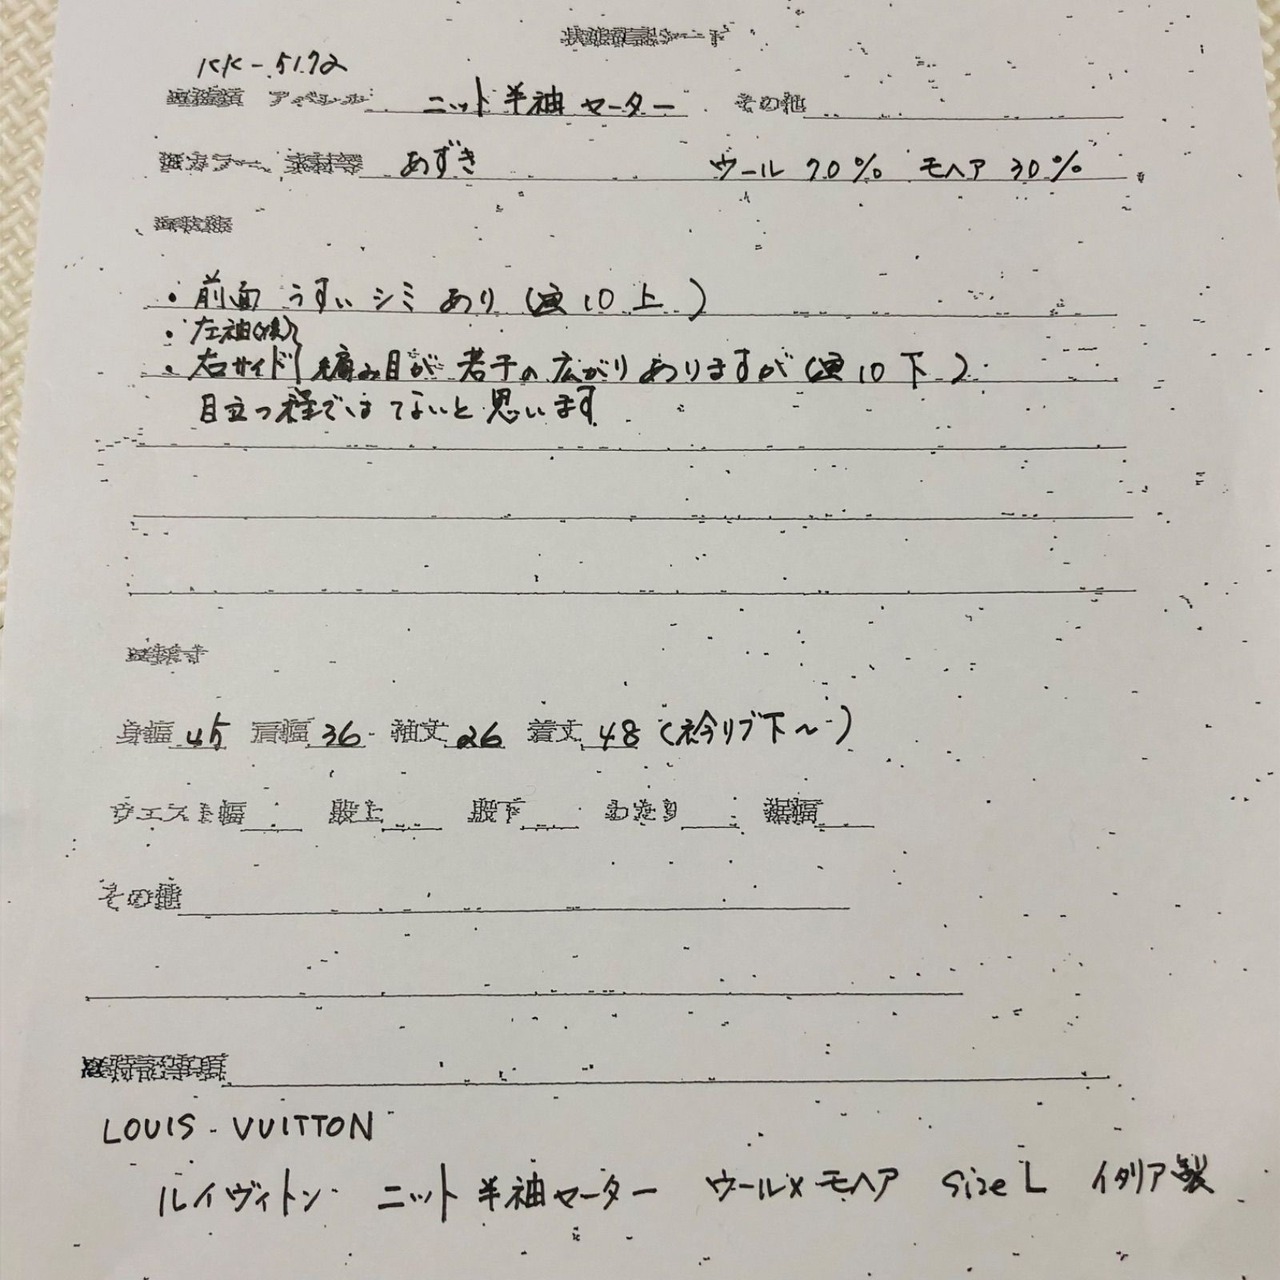 状態確認シート
KK-5172
アパレル ニット半袖セーター その他
カラー 素材等 あずき ウール70% モヘア30%
・前面 うすいシミあり(画10上)
・左袖(後)
・右サイド 編み目が若干の広がりありますが(画10下)
目立つ程ではないと思います
身幅 45 肩幅 36 袖丈 26 着丈 48(衿リブ下〜)
ウエスト幅 股上 股下 わたり 裾幅
その他
特記事項
LOUIS-VUITTON
ルイヴィトン ニット半袖セーター ウール×モヘア size L イタリア製